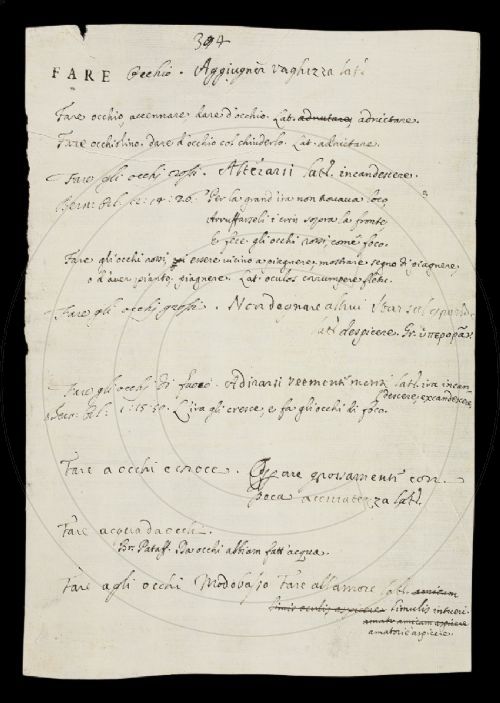 394
FARE Occhio. Aggiugner vaghezza lat.
Fare occhio, accennare, dare d'occhio. Lat. adnutare, adnictare.
Fare occhiolino. dare d'occhio col chiuderlo. Lat. adnictare.
Fare gli occhi rossi. Alterarsi lat. incandescere.
Bern: Orl. 2: 14: 20. Per la grand'ira non trovava loco,
Arruffarseli i crin sopra la fronte,
e fece gli occhi rossi come foco.
Fare gli occhi rossi, essere vicino a piagnere, mostrare segno di piagnere,
o d'aver pianto, piagnere. Lat. oculos corrumpere fletu.
Fare gli occhi grossi. Non degnare altrui
lat. despicere. Gr. ὑπερορᾶν.
Fare gli occhi di fuoco. Adirarsi lat. ira incan
descere, excandescere,
L'ira gli cresce, e fa gli occhi di foco.
Fare a occhi e croce. grossamente con
Poca accuratezza lat.
Fare acqua da occhi.
Br. Pataff. Da occhi abbiam fatt'acqua.
Fare agli occhi Modo basso Fare all'amore lat. amicam
limis oculis aspicere limulis intueri.
amatr amicam aspicere
amatorie aspicere.